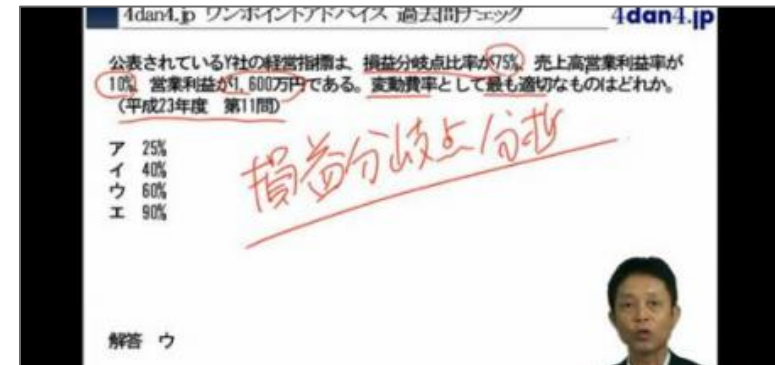 4dan4.jp ワンポイントアドバイス 過去問チェック
4dan4.jp
公表されているY社の経営指標は、損益分岐点比率が75%、売上高営業利益率が
10%、営業利益が1,600万円である。変動費率として最も適切なものはどれか。
(平成23年度 第11問)
ア 25%
イ 40%
ウ 60%
エ 90%
損益分岐点分析
解答 ウ